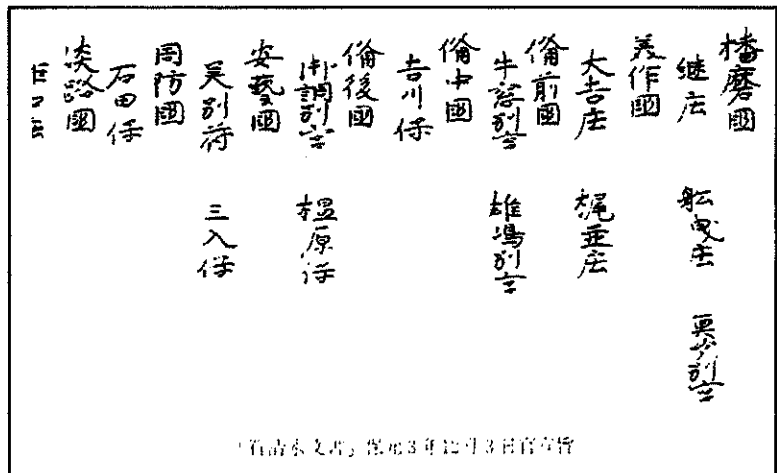 播磨國
継庄 舩曳庄 別宮
美作國
大吉庄 梶並庄
備前國
牛窓別宮 雄嶋別宮
備中國
吉川保
備後國
御調別宮 椙原保
安藝國
呉別符 三入保
周防國
石田保
淡路國
「石清水文書」保元3年12月3日官宣旨